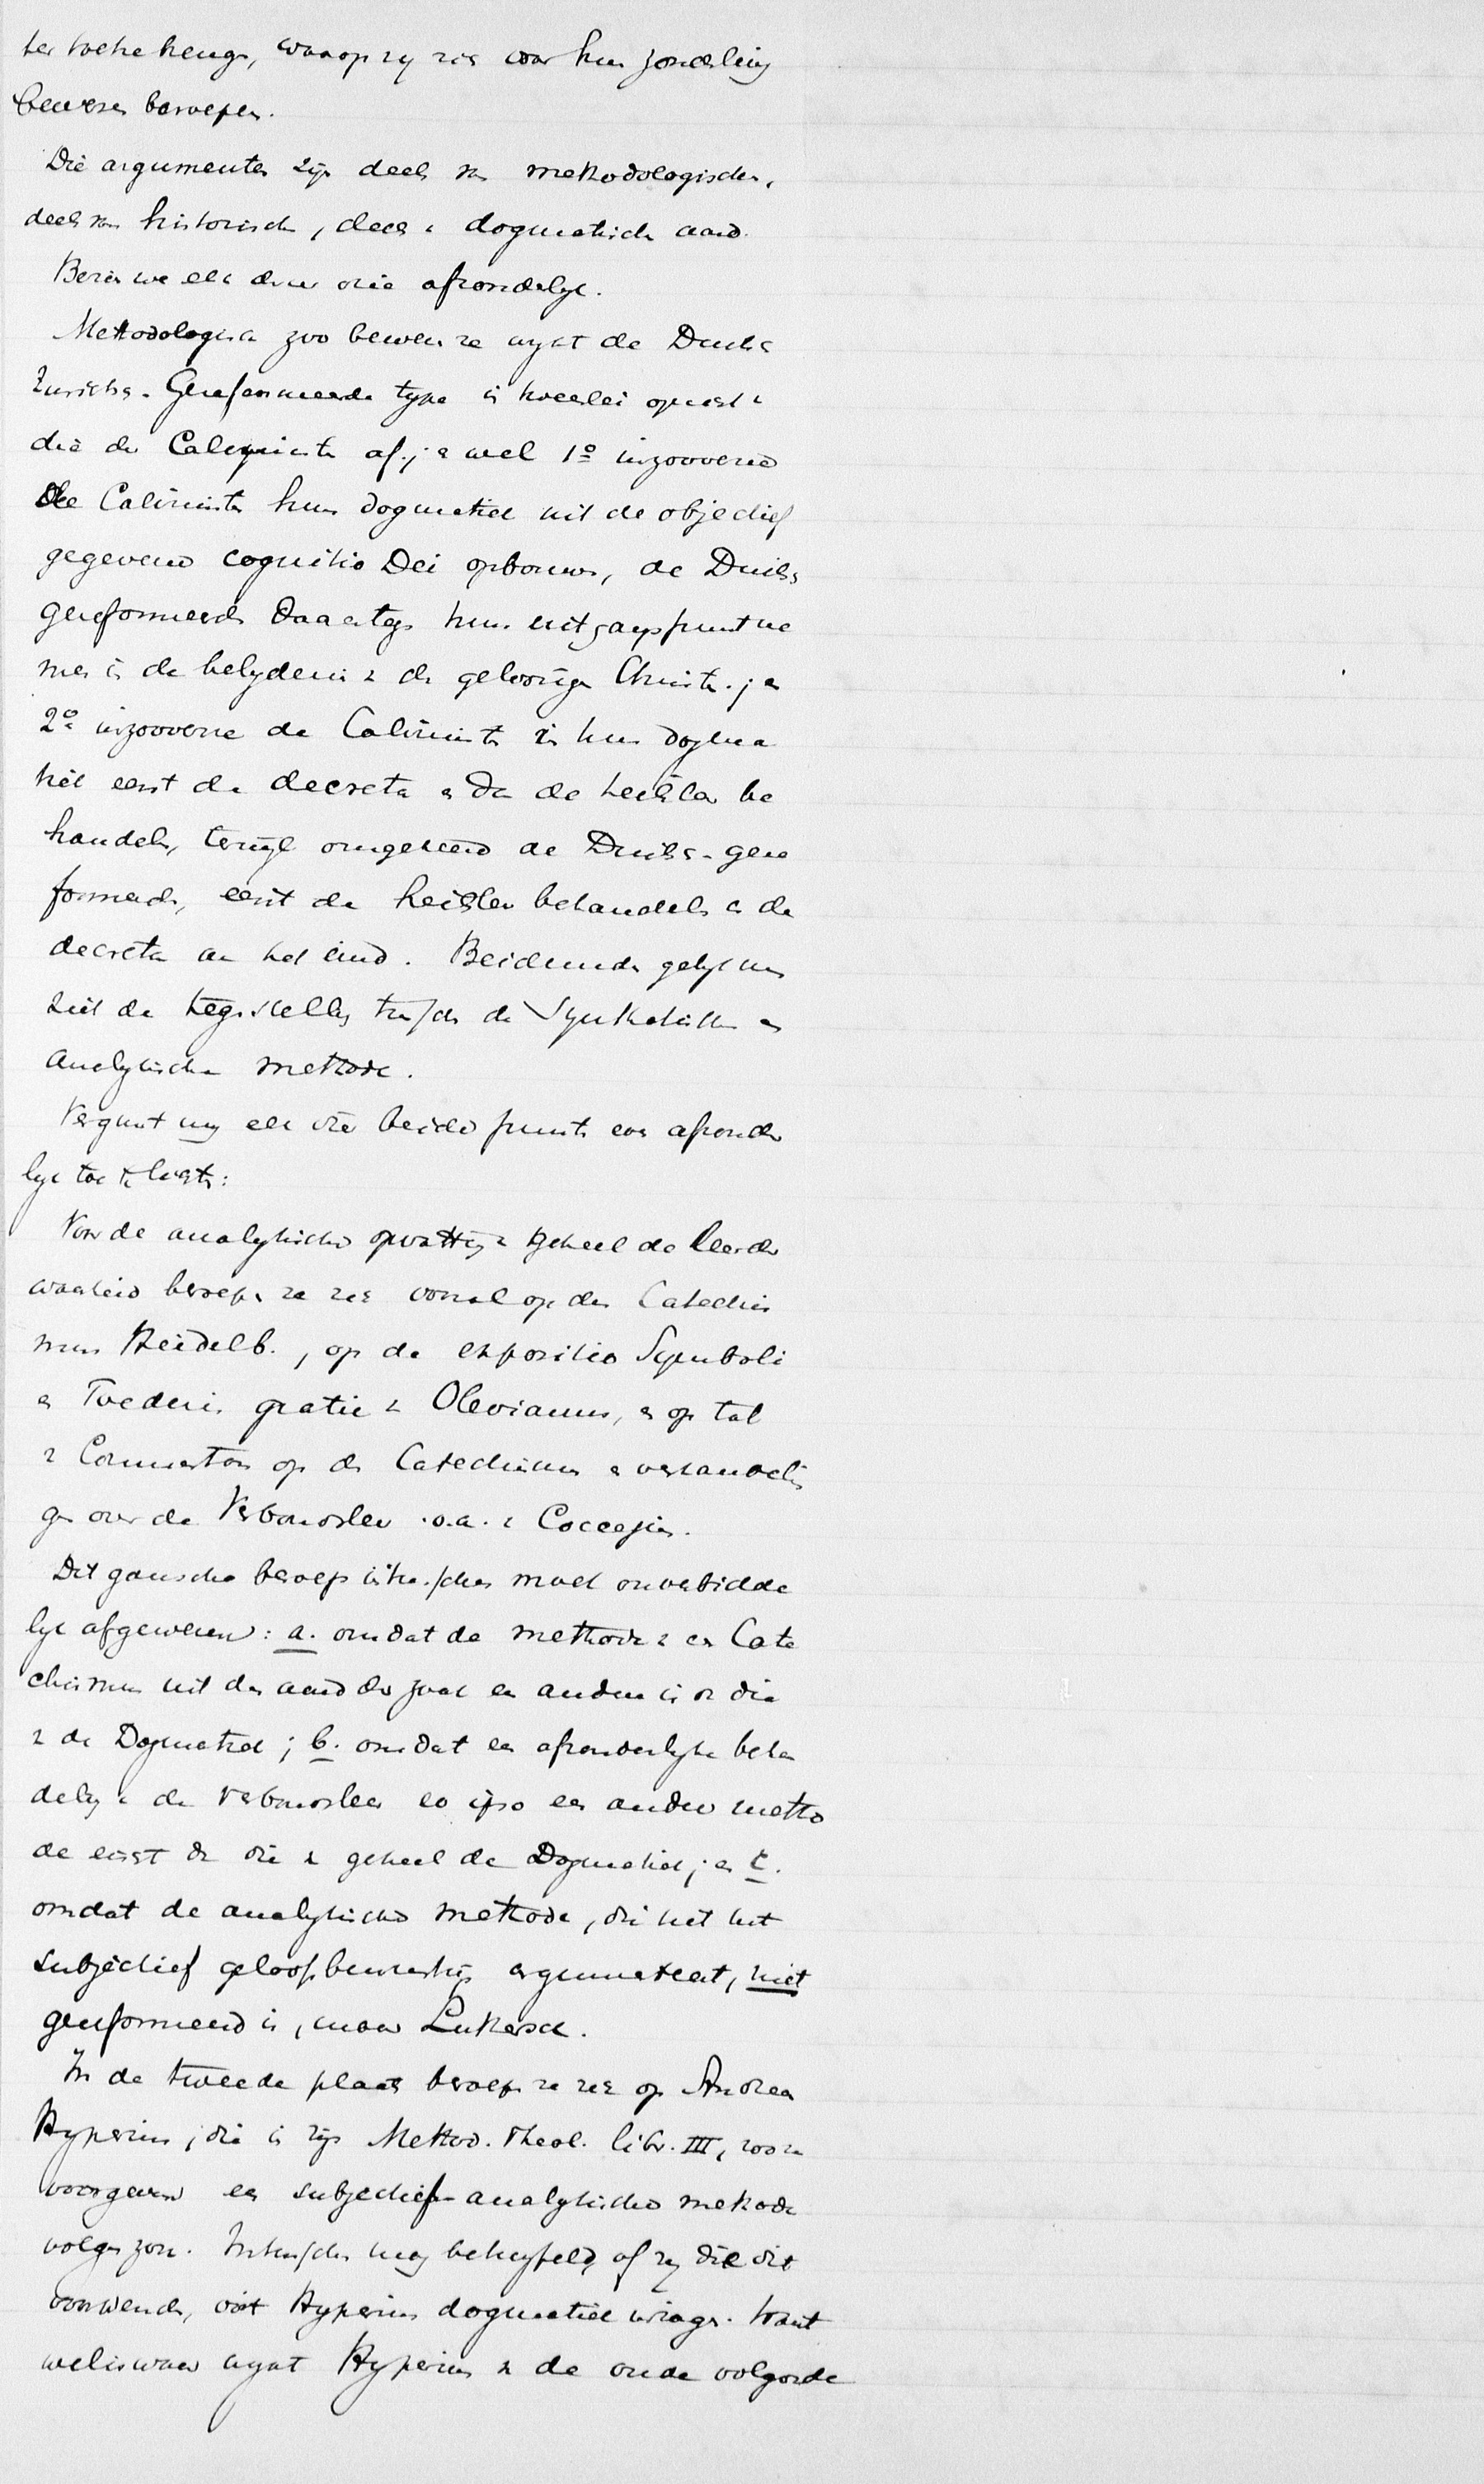 ter toetse brengen, waarop zij zich voor hun zonderling
beweren beroepen.
Die argumenten zijn deels van methodologischen,
deels van historischen, deels v dogmatischen aard.
Bezien we elk dezer drie afzonderlijk.
Methodologisch zoo beweren ze wijkt de Duitsch
Gereformeerde type in tweeërlei opzicht v
die der Calvinisten af; en wel 1º inzooverre
de Calvinisten hun dogmatiek uit de objectief
gegevene cognitio Dei opbouwen, de Duitsch
gereformeerden daarentegen hun uitgangspunt ne
men in de belydenis v den geloovigen Christen; en
2º inzooverre de Calvinisten in hun dogma
tiek eerst de decreta en dan de heilsleer be
handelen, terwijl omgekeerd de Duitsch-gere
formeerden, eerst de heilsleer behandelen en de
decreta aan het eind. Beidemalen gelijk men
ziet de tegenstelling tusschen de Synthetische en
analytische methode.
Vergunt mij elk dier beide punten even afzonder
lijk toe te lichten:
Voor de analytische opvatting v geheel de leer der
waarheid beroepen ze zich vooral op den Catechis
mus Heidelb., op de expositio Symboli
en Foederis gratiae v Olevianus, en op tal
v Commentaren op den Catechismus en verhandelin
gen over de Verbondsleer o.a. v Coccejus.
Dit gansche beroep intusschen moet onverbidde
lijk afgewezen: a. omdat de methode v een Cate
chismus uit den aard der zaak een andere is dan die
v de Dogmatiek; b. omdat een afzonderlijke behan
deling v de verbondsleer eo ipso een andere metho
de eischt dan die v geheel de Dogmatiek; en c.
omdat de analytische methode, die uit het
subjectief geloofsbewustzijn argumenteert, niet
gereformeerd is, maar Luthersch.
In de tweede plaats beroepen ze zich op Andreas
Hyperius, die in zijn Method. Theol. libr. III, zoo ze
voorgeven een subjectief-analytische methode
volgen zou. Intusschen mag betwijfeld, of zij die dit
voorwenden, ooit Hyperius dogmatiek inzagen. Want
weliswaar wijkt Hyperius v de oude volgorde